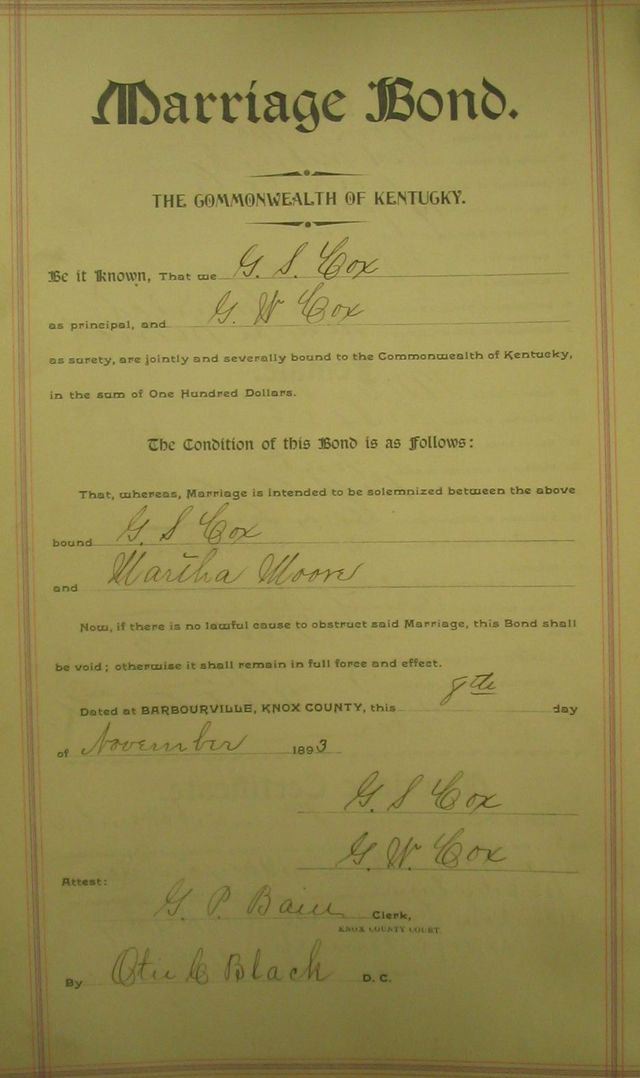 Marriage Bond.
THE COMMONWEALTH OF KENTUCKY.
Be it Known, That we G. S. Cox
as principal, and G. W Cox
as surety, are jointly and severally bound to the Commonwealth of Kentucky,
in the sum of One Hundred Dollars.
The Condition of this Bond is as Follows:
That, whereas, Marriage is intended to be solemnized between the above
bound G. S Cox
and Martha Moore
Now, if there is no lawful cause to obstruct said Marriage, this Bond shall
be void; otherwise it shall remain in full force and effect.
Dated at BARBOURVILLE, KNOX COUNTY, this 8th day
of November 1893
G. S Cox
G. W. Cox
Attest:
G. P. Clerk,
KNOX COUNTY COURT.
By C Black D. C.